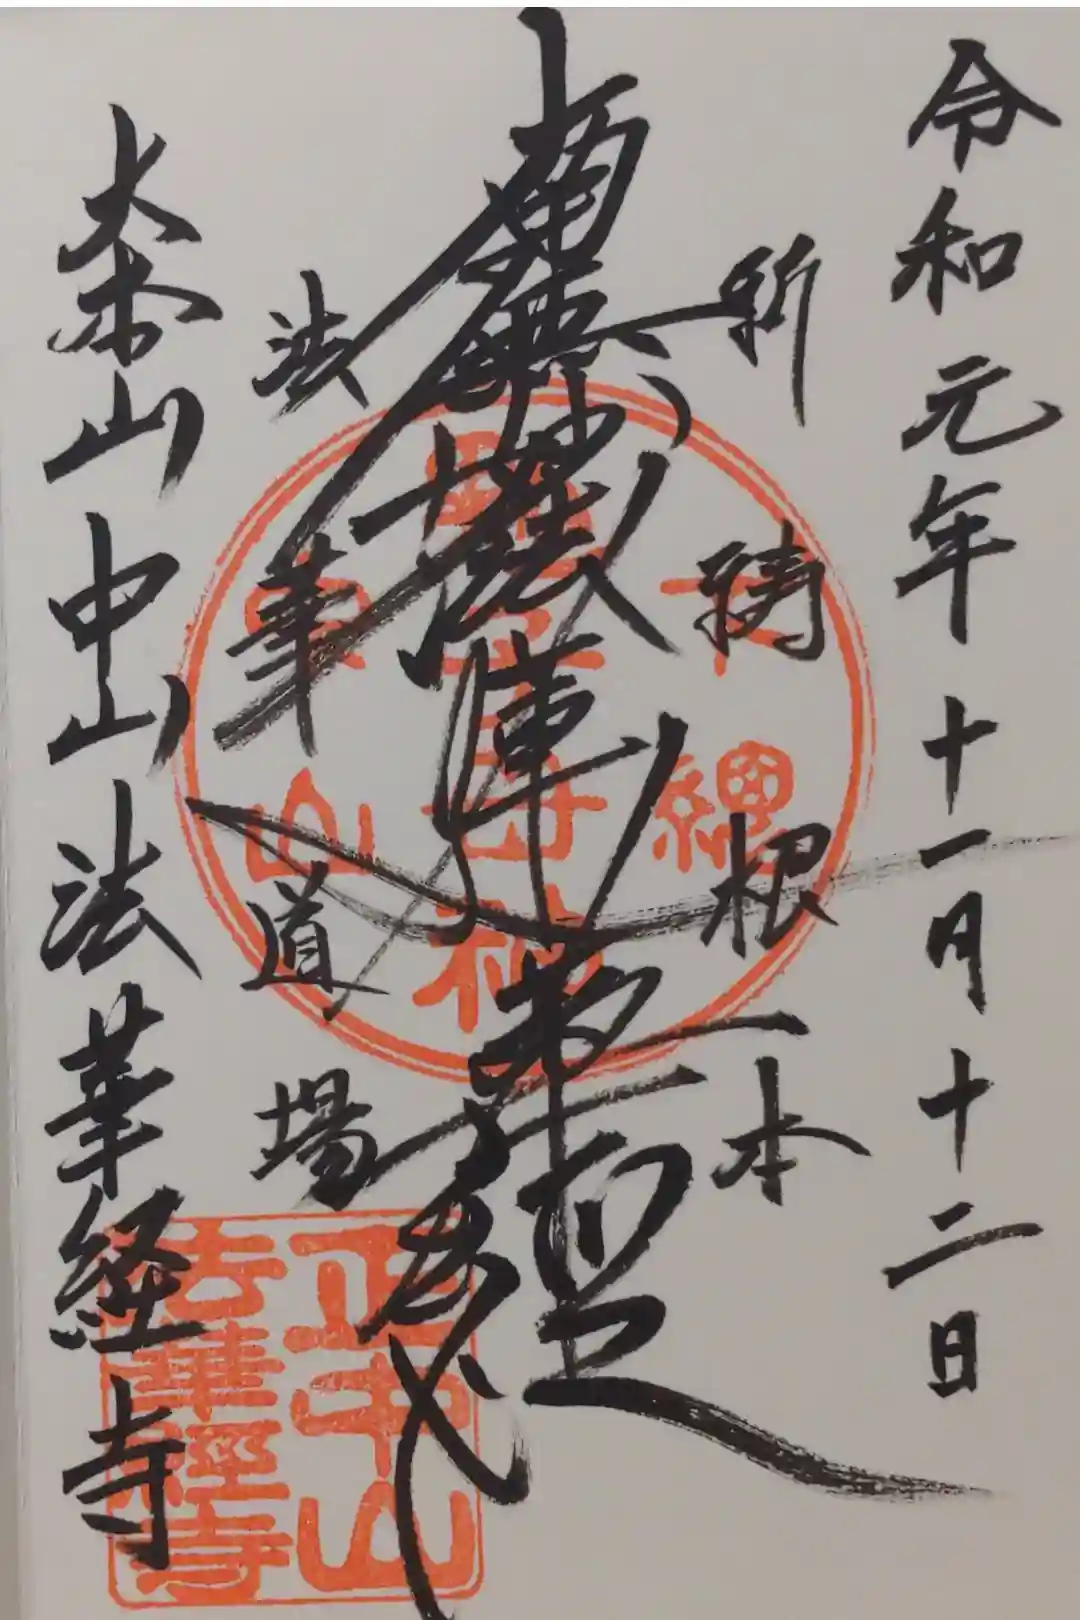 令和元年十一月十二日
祈祷根本
南無妙法蓮華經
法華道場
大本山中山法華経寺
正中山
法華經寺